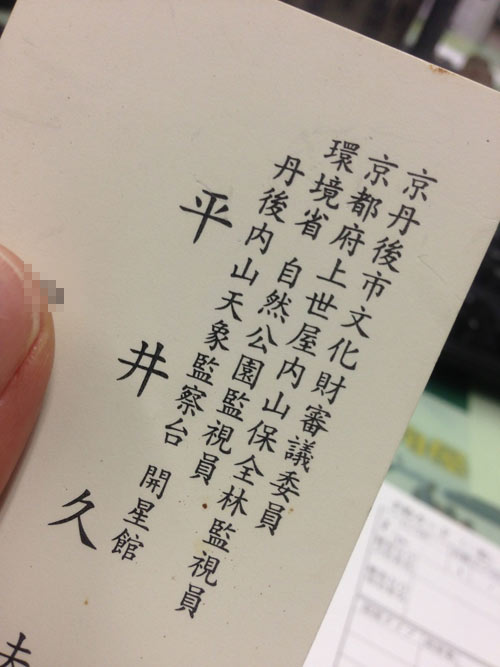 京丹後市文化財審議委員
京都府上世屋内山保全林監視員
環境省 自然公園監視員
丹後内山天象監察台 開星館
平井久